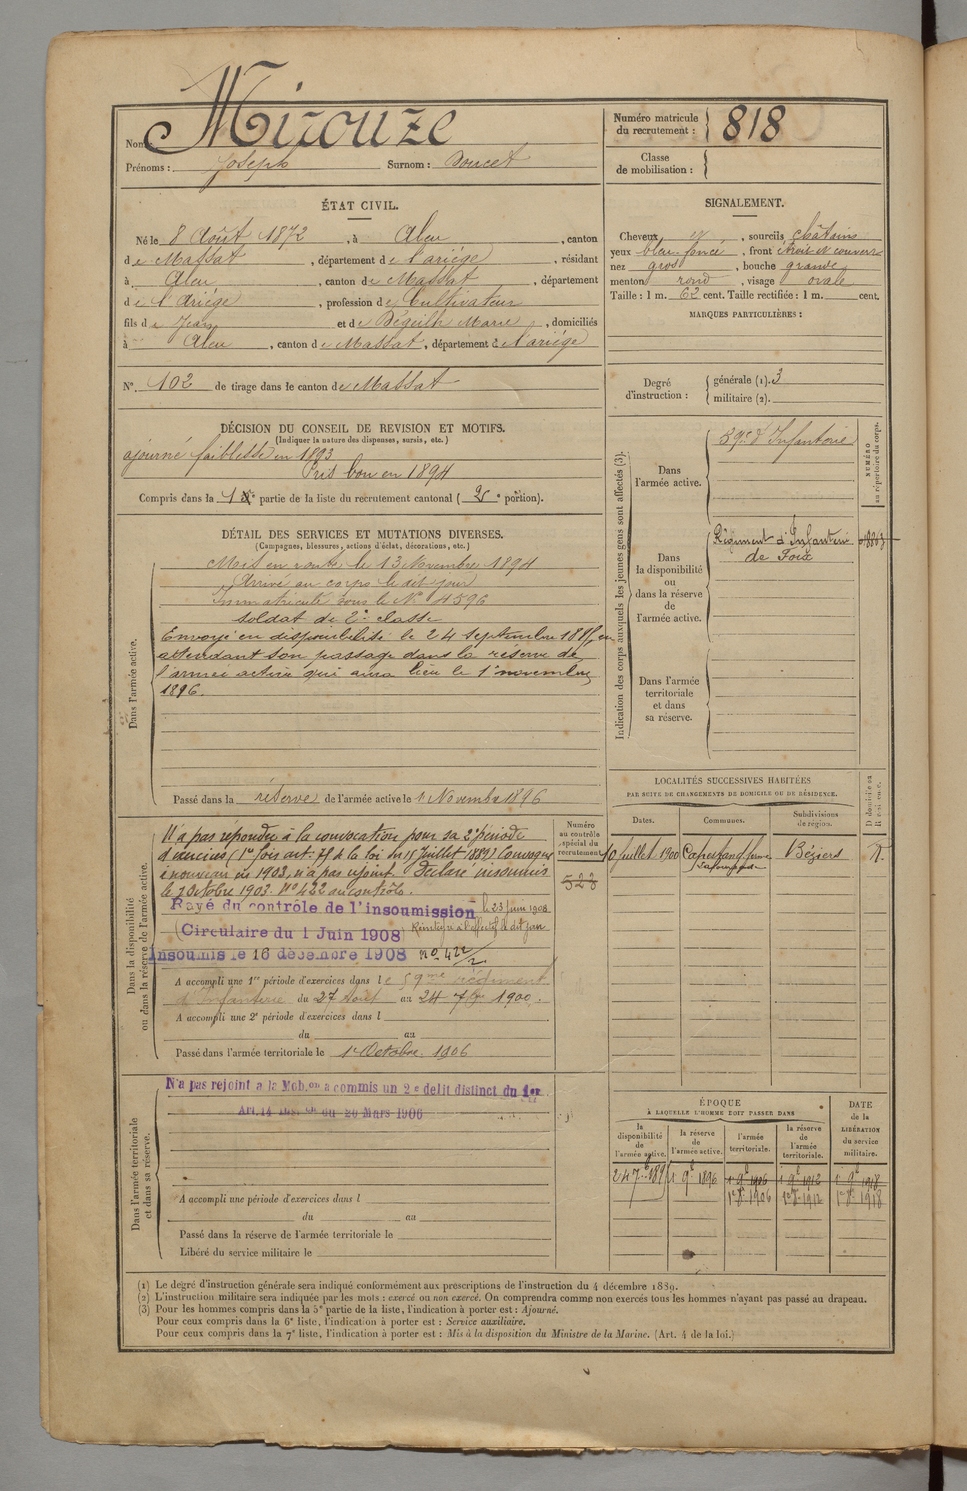 Nom : Mirouze
Prénoms : Joseph Surnom : Doucet
Numéro matricule du recrutement : 818
Classe de mobilisation :
ÉTAT CIVIL.
Né le 8 Août 1872, à Aleu, canton
de Massat, département de l'ariége, résidant
à Aleu, canton de Massat, département
de l'Ariége, profession de Cultivateur
fils de Jean et de Béguilh Marie, domiciliés
à Aleu, canton de Massat, département de l'ariége
N° 102 de tirage dans le canton de Massat
SIGNALEMENT.
Cheveux et, sourcils châtains
yeux bleu foncé, front étroit et couvert
nez gros, bouche grande
menton rond, visage ovale
Taille : 1 m. 62 cent. Taille rectifiée : 1 m. cent.
MARQUES PARTICULIÈRES :
Degré d'instruction : générale (1). 3
militaire (2).
DÉCISION DU CONSEIL DE REVISION ET MOTIFS.
(Indiquer la nature des dispenses, sursis, etc.)
ajourné faiblesse en 1893
Pris bon en 1894
Compris dans la 1e partie de la liste du recrutement cantonal (2e portion).
DÉTAIL DES SERVICES ET MUTATIONS DIVERSES.
(Campagnes, blessures, actions d'éclat, décorations, etc.)
Dans l'armée active.
Mis en route le 13 Novembre 1894
Arrivé au corps le dit jour
Immatriculé sous le N° 4596
soldat de 2e classe
Envoyé en disponibilité le 24 septembre en
attendant son passage dans la réserve de
l'armée active qui aura lieu le 1er novembre
1896.
Passé dans la réserve de l'armée active le 1 Novembre 1896
Indication des corps auxquels les jeunes gens sont affectés (3).
NUMÉRO au répertoire du corps.
Dans l'armée active.
59e d'Infanterie
Dans la disponibilité ou dans la réserve de l'armée active.
Régiment d'Infanterie
de Foix
Dans l'armée territoriale et dans sa réserve.
LOCALITÉS SUCCESSIVES HABITÉES
PAR SUITE DE CHANGEMENTS DE DOMICILE OU DE RÉSIDENCE.
Dates. Communes. Subdivisions de région. D domicile ou R résidence.
10 juillet 1900 Béziers
Dans la disponibilité ou dans la réserve de l'armée active.
Numéro au contrôle spécial du recrutement
523
N'a pas répondu à la convocation pour sa 2e période
d'exercices (1re fois art. 75 de la loi du 15 Juillet 1889) Convoqué
à nouveau en 1903, n'a pas rejoint. Déclaré insoumis
le 2 Octobre 1903. N° 422 au contrôle.
Rayé du contrôle de l'insoumission le 23 juin 1908
(Circulaire du 1 Juin 1908)
Insoumis le 16 décembre 1908 no 422/2
A accompli une 1re période d'exercices dans le 59me régiment
d'Infanterie du 27 Août au 24 7bre 1900.
A accompli une 2e période d'exercices dans l
du au
Passé dans l'armée territoriale le 1er Octobre 1906
Dans l'armée territoriale et dans sa réserve.
N'a pas rejoint a la Mob.on a commis un 2e delit distinct du 1er
Art. 14 Inst.on du 20 Mars 1906
A accompli une période d'exercices dans l
du au
Passé dans la réserve de l'armée territoriale le
Libéré du service militaire le
ÉPOQUE
À LAQUELLE L'HOMME DOIT PASSER DANS
DATE de la LIBÉRATION du service militaire.
la disponibilité de l'armée active. la réserve de l'armée active. l'armée territoriale. la réserve de l'armée territoriale.
1 9e 1896 1 9e 1906 1 9e 1912 1 9e 1918
1er 8e 1906 1er 8e 1912 1er 8e 1918
(1) Le degré d'instruction générale sera indiqué conformément aux prescriptions de l'instruction du 4 décembre 1889.
(2) L'instruction militaire sera indiquée par les mots : exercé ou non exercé. On comprendra comme non exercés tous les hommes n'ayant pas passé au drapeau.
(3) Pour les hommes compris dans la 5e partie de la liste, l'indication à porter est : Ajourné.
Pour ceux compris dans la 6e liste, l'indication à porter est : Service auxiliaire.
Pour ceux compris dans la 7e liste, l'indication à porter est : Mis à la disposition du Ministre de la Marine. (Art. 4 de la loi.)